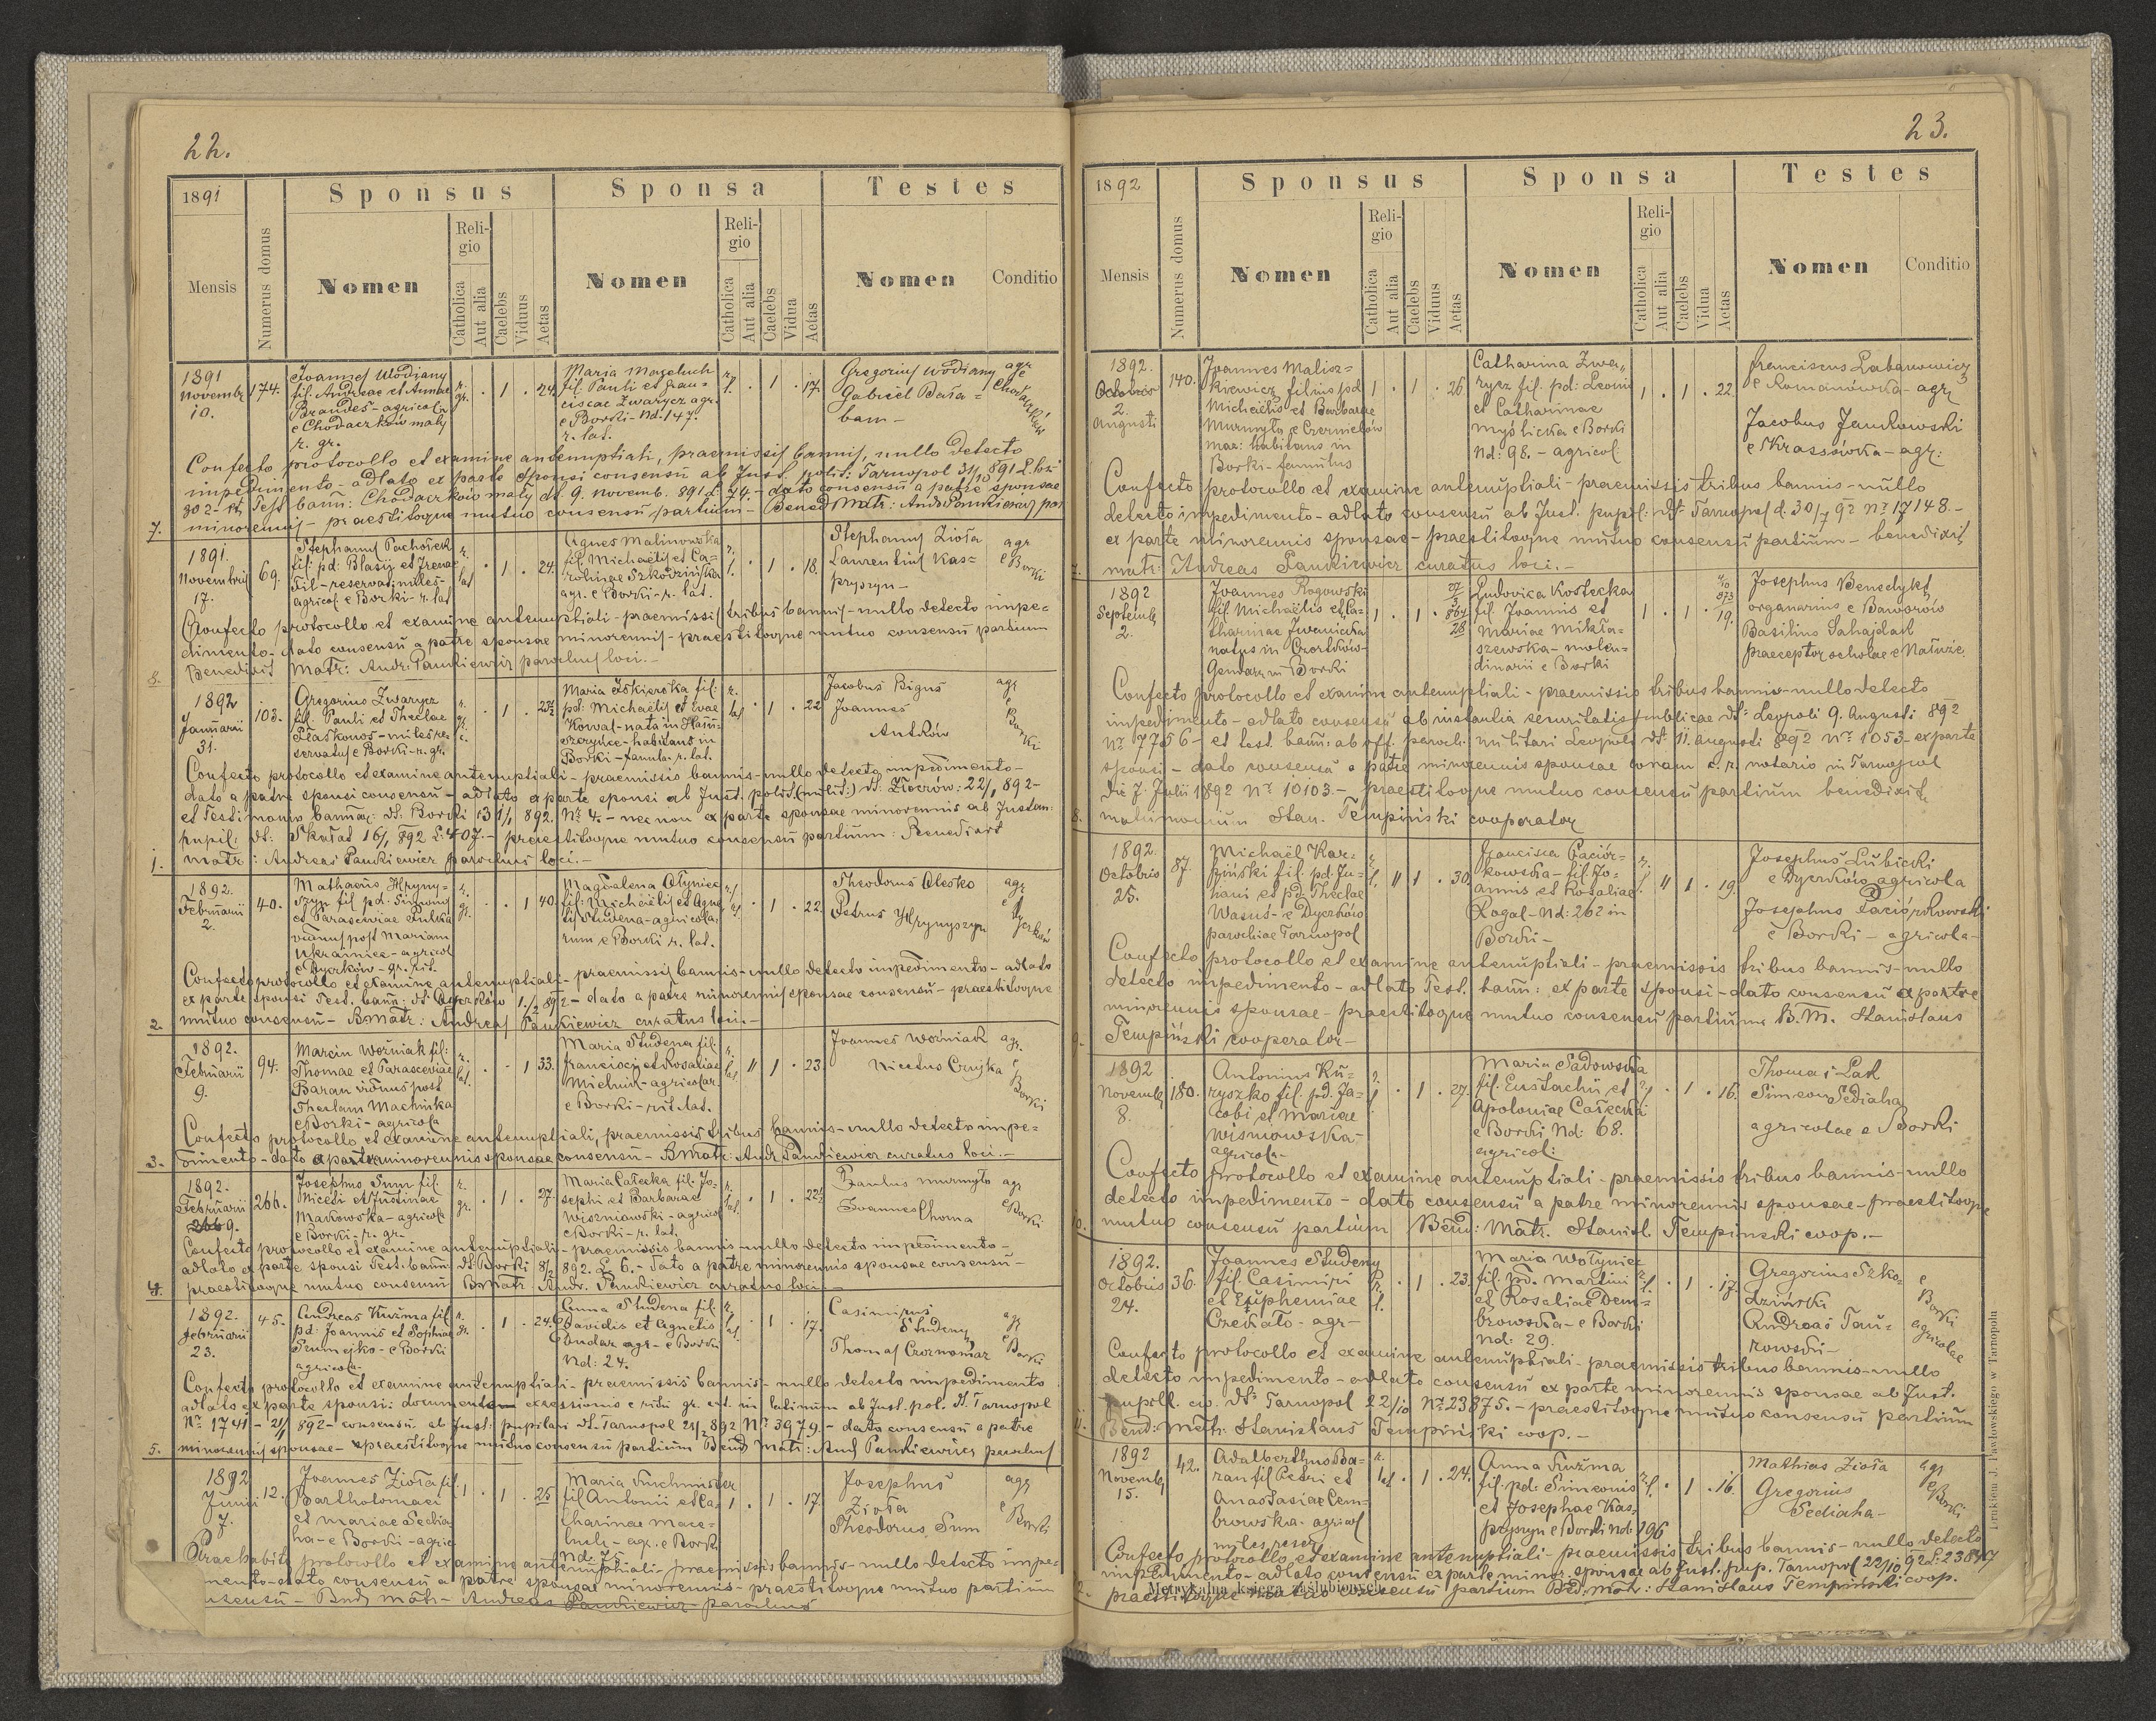 22.
1891
Sponsus
Sponsa
Testes
Mensis
Numerus domus
Nomen
Religio
Catholica
Aut alia
Caelebs
Viduus
Aetas
Nomen
Religio
Catholica
Aut alia
Caelebs
Vidua
Aetas
Nomen
Conditio
1891
Novembr
10.
174.
Joannes Wodiany
fil. Andreae et Annae
Brandes - agricola
e Chodaczków mały
r. gr.
r.
gr.
1
24
Maria Mazeluch
fil. Pauli et Fran=
ciscae Zwarycz agr.
e Borki - Nd. 147.
r. lat.
1
17.
Gregorius Wodiany
Gabriel Bała=
ban -
agr
e
Chodaczków
Confecto protocollo et examine antenuptiali, praemissis bannis, nullo detecto
impedimento - adlato ex parte sponsi consensu ab Just. polit: Tarnopol 31/10 891
Test bann: Chodaczków mały dt. 9. novemb. 891 L. 74. - dato consensu a patre sponsae
7. minorennis - praestitoque mutuo consensu partium - Bened Matr: Andr Pankiewicz par
1891.
Novembris
17.
69.
Stephanus Pachołek
fil: pd: Blasij et Irenae
Fil - reservat. miles -
agricol e Borki - r. lat
r.
lat
1
24.
Agnes Malinowska
fil. Michaelis et Ca=
rolinae Szkodzińska
agr. e Borki - r. lat.
r.
l.
1
18.
Stephanus Zioła
Laurentius Kas=
przyszyn -
agr
e Borki
Confecto protocollo et examine antenuptiali - praemissis tribus bannis - nullo detecto impe=
dimento - dato consensu a patre sponsae minorennis - praestitoque mutuo consensu partium
8. Benedixit Matr: Andr. Pankiewicz parochus loci. -
1892
Januarii
31.
103.
Gregorius Zwarycz
fil. Pauli et Theclae
Płaskonos - miles re=
servatus e Borki - r. gr.
1
Maria Iskierska fil:
pd: Michaelis et Evae
Kowal - nata in
habitans in
Borki - famula. r. lat.
r.
lat
1
22
Jacobus Biguś
Joannes
Antków
agr
e
Borki
Confecto protocollo et examine antenuptiali - praemissis bannis - nullo detecto impedimento -
dato a patre sponsi consensu - adlato ex parte sponsi ab Just. polit. (milit:) dt. Złoczów: 22/1 892 -
et Testimonio bannae: dt: Borki 31/1 892. Nº 4 - nec non ex parte sponsae minorennis ab Justan:
pupil: dt: Skałat 16/1 892 L: 407. - praestitoque mutuo consensu partium: Benedixit
1. Matr: Andreas Pankiewicz parochus loci. -
1892.
Februarii
2.
40.
Mathaeus Hryny=
szyn fil pd. Simeonis
et Parascewiae Pulka
viduus post Mariam
Ukrainiec - agricol
e Dyczków - gr. rit.
r.
gr.
1
40.
Magdalena Ołyniec
fil: Michaelis et Agne
tis Studena - agricola=
rum e Borki r. lat.
1
22.
Theodorus Olesko
Petrus Hrynyszyn
agr
e
Dyczków
Confecto protocollo et examine antenuptiali - praemissis bannis - nullo detecto impedimento - adlato
ex parte sponsi Test. bann: dt: Dyczków 1/2 892 - dato a patre minorennis sponsae consensu - praestitoque
2. mutuo consensu - B Matr: Andreas Pankiewicz curatus loci. -
1892.
Februarii
9.
94.
Marcin Woźniak fil:
Thomae et Parasceviae
Baran viduus post
Theclam Machnika
e Borki - agricola
r.
lat.
1
33.
Maria Studena fil:
Francisci et Rosaliae
Michnir - agricolar.
e Borki - rit. lat.
r.
lat
1
23
Joannes Woźniak
Nicetus Czujka
agr.
e
Borki
Confecto protocollo et examine antenuptiali, praemissis tribus bannis - nullo detecto impe=
3. dimento - dato a patre minorennis sponsae consensu - B Matr: Andr Pankiewicz curatus loci. -
1892.
Februarii
9.
266.
Josephus Sum fil.
Niceti et Justinae
Makowska - agricola
e Borki - r. gr.
r.
gr.
1
27.
Maria Całecka fil. Jo=
sephi et Barbarae
Wiszniowski - agricol
e Borki - r. lat.
r.
lat.
1
Paulus Murmyło
Joannes Choma
agr
e Borki
Confecto protocollo et examine antenuptiali - praemissis bannis - nullo detecto impedimento -
adlato ex parte sponsi Test. bann: dt Borki 8/2 892. L 6. - Dato a patre minorennis sponsae consensu -
4. praestitoque mutuo consensu B Matr Andr. Pankiewicz curatus loci
1892.
Februarii
23.
45.
Andreas Kuźma fil
pd: Joannis et Sophiae
e Borki
agricola -
r.
gr.
1
24.
Anna Studena fil.
Davidis et Agnetis
Bondar agr - e Borki
Nd: 24.
r.
lat.
1
17.
Casimirus
Studeny
Thomas Czornomaz
agr
e
Borki
Confecto protocollo et examine antenuptiali - praemissis bannis - nullo detecto impedimento
adlato ex parte sponsi: documentum excessionis e ritu gr. cat. in latinum ab Just. pol. dt Tarnopol
Nº 1741 - 21/1 892 - consensu ab Just: pupilari dt. Tarnopol 21/2 892 Nº 3979 - dato consensu a patre
5. minorennis sponsae - praestitoque mutuo consensu partium Bend Matr: And Pankiewicz parochus
1892
Junii
7.
12.
Joannes Zioła fil.
Bartholomaei
et Mariae Sedia
ha - e Borki - agric
1
1
25
Maria Suchminster
fil Antonii et Ca=
tharinae Maze=
luch - agr. e Borki
Nd. 75.
1
1
17.
Josephus
Zioła
Theodorus Sum
agr
e
Borki
Praehabito protocollo et examine antenuptiali - praemissis bannis - nullo detecto impe=
mento - dato consensu a patre sponsae minorennis - praestitoque mutuo partium
nsensu - Bndx Matr - Andreas Pankiewicz parochus
23.
1892
Sponsus
Sponsa
Testes
Mensis
Numerus domus
Nomen
Religio
Catholica
Aut alia
Caelebs
Viduus
Aetas
Nomen
Religio
Catholica
Aut alia
Caelebs
Vidua
Aetas
Nomen
Conditio
1892.
Octobris
2.
Augusti
140.
Joannes Malisz=
kiewicz filius pd
Michaelis et Barbarae
Murmyło e Czernielów
maz: habitans in
Borki - famulus
1
1
26
Catharina Zwa,,
rycz fil. pd: Leonis
et Catharinae
Myślicka e Borki
Nd: 98. - agricol:
1
1
22.
Franciscus Labanowicz
e Romanówka - agr
Jacobus Jankowski
e Krassówka - agr:
Confecto protocollo et examine antenuptiali - praemissis tribus bannis - nullo
detecto impedimento - adlato consensu ab Just. pupil: dt Tarnopol d. 30/7 92 Nº 17148. -
ex parte minorennis sponsae - praestitoque mutuo consensu partium - benedixit
7. matr: Andreas Pankiewicz curatus loci. -
1892
Septemb
2.
Joannes Rogowski
fil. Michaelis et Ca=
tharinae Iwanicka
natus in Czortków -
Gendarm Borki
1
1
864
28
Ludovica Kostecka
fil. Joannis et
Mariae Mikła=
szewska - molen=
dinarii e Borki
1
1
873
19.
Josephus Benedykt
organarius e Baworów
Basilius Sahajdak
praeceptor scholae e Nałuże.
Confecto protocollo et examine antenuptiali - praemissis tribus bannis - nullo detecto
impedimento - adlato consensu ab instantia securitatis publicae dt: Leopoli 9. Augusti 892
Nº 17756 - et test. bann: ab off. paroch. militari Leopoli dt. 11. augusti 892 Nº 1053 - ex parte
sponsi - dato consensu a patre minorennis sponsae coram c. r. notario in Tarnopol
die 7. Julii 1892 Nº 10103. - praestitoque mutuo consensu partium benedixit
8. matrimonium Stan. Tempiński cooperator
1892.
Octobris
25.
87.
Michael Kar=
ziński fil. pd. Ju=
liani et pd. Theclae
Wasuś - e Dyczków
parochiae Tarnopol
r.
l.
1
30.
Francisca Paciór=
kowska - fil. Jo=
annis et Rosaliae
Rogal - Nd: 262 in
Borki -
1
19.
Josephus Lubicki
e Dyczków agricola
Josephus Paciórkowski
e Borki - agricola -
Confecto protocollo et examine antenuptiali - praemissis tribus bannis - nullo
detecto impedimento - adlato Test. bann: ex parte sponsi - dato consensu a patre
minorennis sponsae - praestitoque mutuo consensu partium B. M. Stanislaus
9. Tempiński cooperator -
1892
Novemb
8.
180.
Antonius Ku=
ryszko fil. pd. Ja=
cobi et Mariae
Wismowska -
agricola -
1
27.
Maria Sadowska
fil. Eustachii et
Apoloniae Całecka
e Borki Nd: 68.
agricol:
1
16.
Thomas Lak
Simeon Sediaha
agricolae e Borki
Confecto protocollo et examine antenuptiali - praemissis tribus bannis - nullo
detecto impedimento - dato consensu a patre minorennis sponsae - praestitoque
10. mutuo consensu partium Bend: Matr. Stanisl. Tempinski coop. -
1892.
Octobris
24.
36.
Joannes Studeny
fil. Casimiri
et Euphemiae
agr -
1
23.
Maria Wołyniec
fil. pd. Martini
et Rosaliae Dem=
browska - e Borki
Nd: 29.
1
17
Gregorius Szko=
dziński
Andreas Tau=
rowski -
e
Borki
agricolae
Confecto protocollo et examine antenuptiali - praemissis tribus bannis - nullo
detecto impedimento - adlato consensu ex parte minorennis sponsae ab Just.
pupill. civ. dt: Tarnopol 22/10 Nº 23875. - praestitoque mutuo consensu partium
11. Bend: Matr: Stanislaus Tempiński coop. -
1892
Novemb
15.
42.
Adalberthus Ba=
ran fil Petri et
Anastasiae Cem=
browska. agricol
miles reserv
r.
lat
1
24.
Anna Kuźma
fil. pd: Simeonis
et Josephae Kas=
przyszyn e Borki Nd. 196
1
16.
Mathias Zioła
Gregorius
Sediaha -
agr
e
Borki
Confecto protocollo et examine antenuptiali - praemissis tribus bannis - nullo detecto
impedimento - adlato consensu ex parte minor. sponsae ab Just. pup. Tarnopol 22/10 92 L: 23847
praestitoque mutuo consensu partium Bd. Matr: Stanislaus Tempiński coop.
Metrykalna księga zaślubionych.
Drukiem J. Pawłowskiego w Tarnopolu